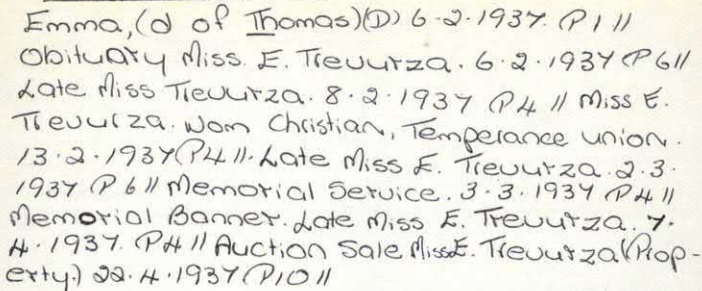 Emma, (d of Thomas) (D) 6.2.1937. (P1 //
Obituary Miss. E. Trevurza. 6.2.1937 (P6 //
Late Miss Trevurza. 8.2.1937 (P4 // Miss E.
Trevurza. Wom Christian, Temperance union.
13.2.1937 (P4 //. Late Miss E. Trevurza. 2.3.
1937 (P6 // Memorial Service. 3.3.1937 (P4 //
Memorial Banner. Late Miss E. Trevurza. 7.
4.1937. (P4 // Auction Sale Miss E. Trevurza (Prop-
erty.) 22.4.1937 (P10 //